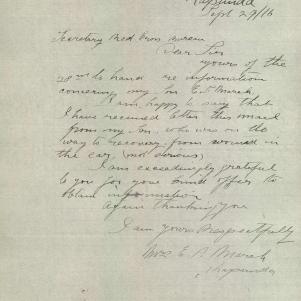 Kapunda
Sept 29/16
Secretary Red Cross Bureau
Dear Sir
yours of the
28th to hand re information
concerning my son E. S. Murch
I am happy to say that
I have received letter this mail
from my son, who was on the
way to recovery from wound in
the ear, (not serious)
I am exceedingly grateful
to you for your kind offer to
obtain information
again thanking you
I am yours Respectfully
Mrs E. A. Murch
Kapunda